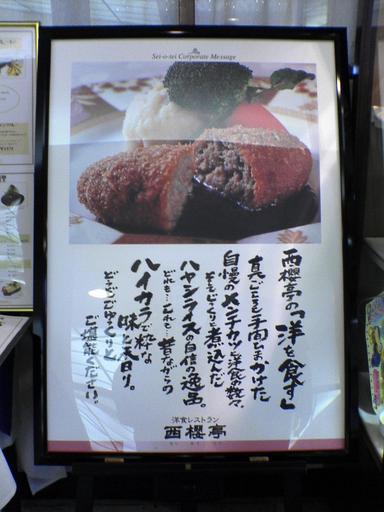 Sei-o-tei Corporate Message
西櫻亭の「洋を食す」
真ごころと手間ひまかけた
自慢のメンチカツと洋食の数々、
そしてじっくり煮込んだ
ハヤシライスの自信の逸品。
どれも…これも…昔ながらの
ハイカラで粋な
味と天日り。
どうぞごゆっくりと
ご堪能ください。
洋食レストラン
西櫻亭